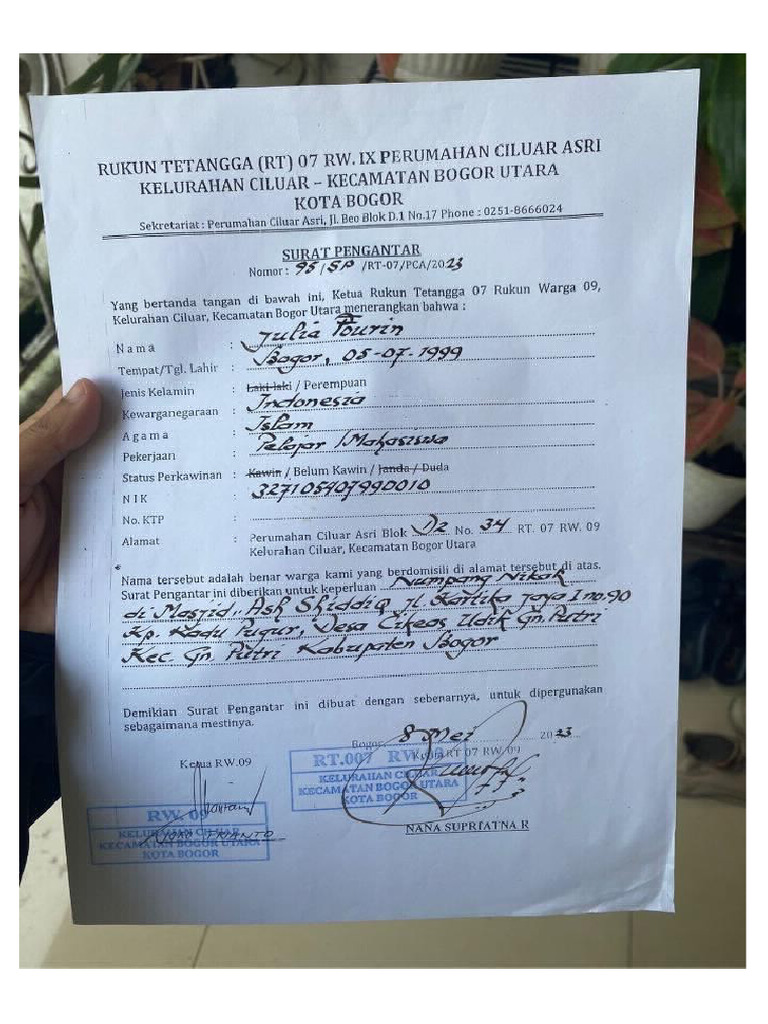 RUKUN TETANGGA (RT) 07 RW. IX PERUMAHAN CILUAR ASRI
KELURAHAN CILUAR – KECAMATAN BOGOR UTARA
KOTA BOGOR
Sekretariat : Perumahan Ciluar Asri, Jl. Beo Blok D.1 No.17 Phone : 0251-8666024
SURAT PENGANTAR
Nomor : 95/SP /RT-07/PCA/2023
Yang bertanda tangan di bawah ini, Ketua Rukun Tetangga 07 Rukun Warga 09,
Kelurahan Ciluar, Kecamatan Bogor Utara menerangkan bahwa :
Nama : Julia Fourin
Tempat/Tgl. Lahir : Bogor, 05-07-1999
Jenis Kelamin : Laki-laki / Perempuan
Kewarganegaraan : Indonesia
Agama : Islam
Pekerjaan : Pelajar / Mahasiswa
Status Perkawinan : Kawin / Belum Kawin / Janda / Duda
NIK : 327105407990010
No. KTP :
Alamat : Perumahan Ciluar Asri Blok D2 No. 34 RT. 07 RW. 09
Kelurahan Ciluar, Kecamatan Bogor Utara
Nama tersebut adalah benar warga kami yang berdomisili di alamat tersebut di atas.
Surat Pengantar ini diberikan untuk keperluan Numpang Nikah
di Masjid, Ash Shiddiq jl. Kartika Jaya I no.90
Kp. Kadu Pugur, Desa Cikeas Udik Gn. Putri
Kec. Gn. Putri Kabupaten Bogor
Demikian Surat Pengantar ini dibuat dengan sebenarnya, untuk dipergunakan
sebagaimana mestinya.
Bogor, 8 Mei 2023
Ketua RW.09
Ketua RT 07 RW.09
RT.007 RW.
KELURAHAN CILUAR
KECAMATAN BOGOR UTARA
KOTA BOGOR
RW. 09
KELURAHAN CILUAR
KECAMATAN BOGOR UTARA
KOTA BOGOR
NANA SUPRIATNA R